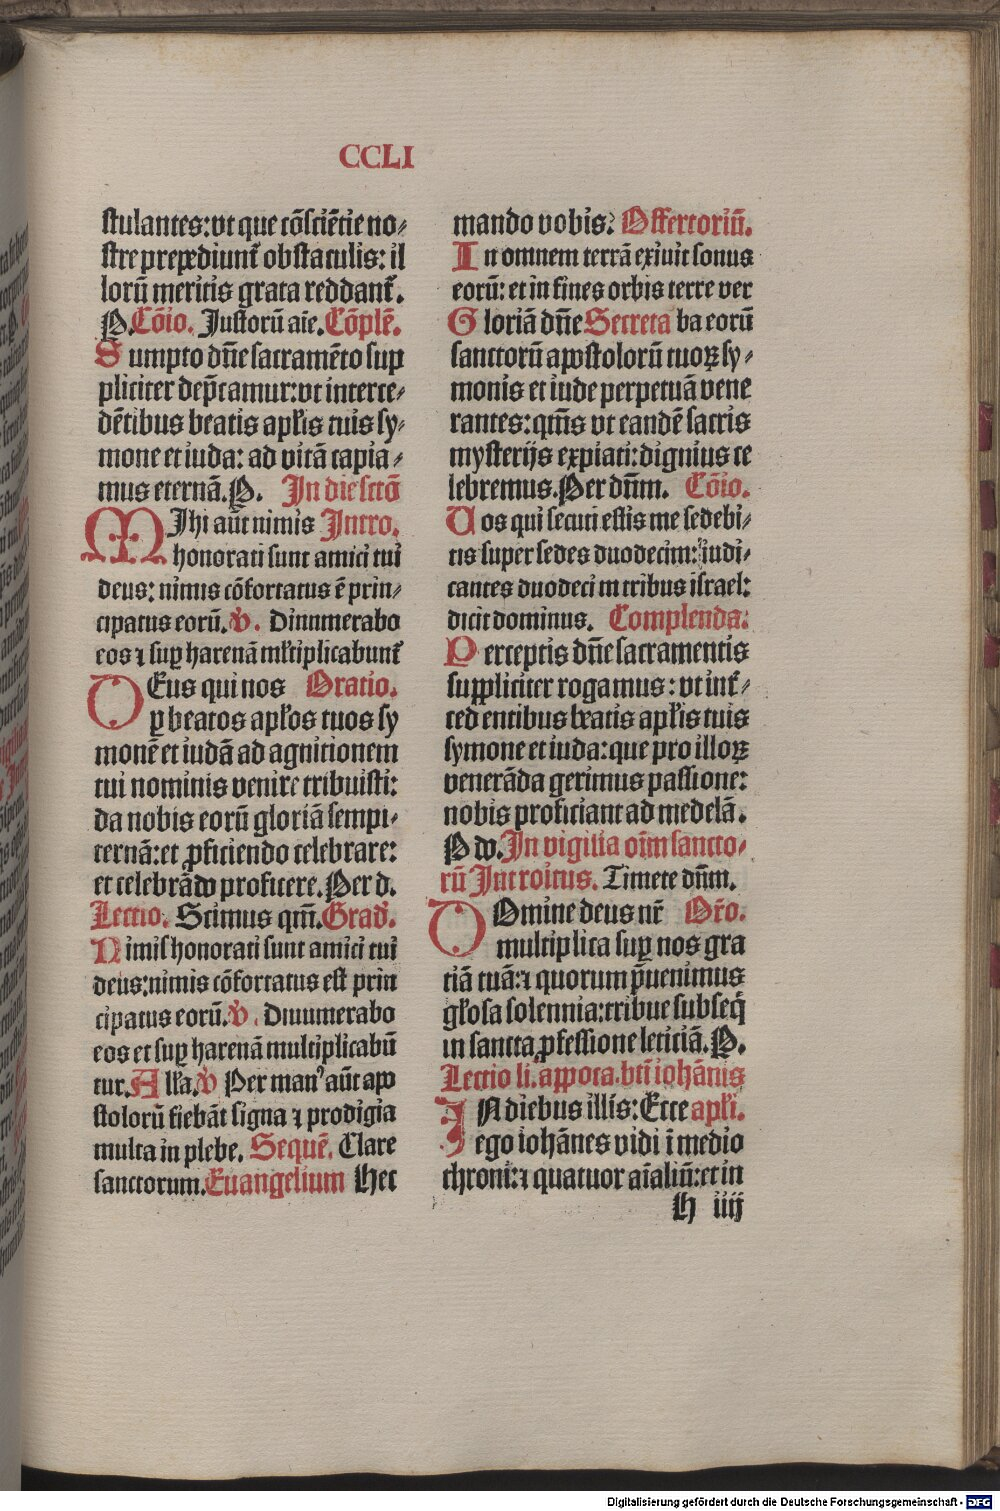 CCLI
stulantes: vt que cõsciẽtie no⸗
stre prepediunt᷑ obstaculis: il
lorũ meritis grata reddant᷑.
P. Cõio. Justorũ aie. Cõplẽ.
Sumpto dñe sacramẽto sup
pliciter dep̃camur: vt interce⸗
dẽtibus beatis apl̃is tuis sy⸗
mone et iuda: ad vitã capia⸗
mus eternã. P. In die sctõ
MIhi aũt nimis Intro.
honorati sunt amici tui
deus: nimis cõfortatus ẽ prin⸗
cipatus eorũ. V̾. Dinumerabo
eos ⁊ suꝑ harenã ml̃tiplicabunt᷑
DEus qui nos Oratio.
ꝑ beatos apl̃os tuos sy
monẽ et iudã ad agnitionem
tui nominis venire tribuisti:
da nobis eorũ gloriã sempi⸗
ternã: et ꝓficiendo celebrare:
et celebrãdo proficere. Per d.
Lectio. Scimus qm̃. Grad᷑.
Nimis honorati sunt amici tui
deus: nimis cõfortatus est prin
cipatus eorũ. V̾. Dinumerabo
eos et suꝑ harenã multiplicabũ
tur. All̃a. V̾ Per manꝰ aũt apo
stolorũ fiebãt signa ⁊ prodigia
multa in plebe. Sequẽ. Clare
sanctorum. Euangelium Hec
mando vobis. Offertoriũ.
In omnem terrã exiuit sonus
eorũ: et in fines orbis terre ver
Gloriã dñe Secreta ba eorũ
sanctorũ apostolorũ tuoꝝ sy⸗
monis et iude perpetuã vene
rantes: qm̃s vt eandẽ sacris
mysterijs expiati: dignius ce
lebremus. Per dñm. Cõio.
Vos qui secuti estis me sedebi⸗
tis super sedes duodecim: iudi⸗
cantes duodecim tribus israel:
dicit dominus. Complenda:
Perceptis dñe sacramentis
suppliciter rogamus: vt int᷑⸗
cedentibus beatis apl̃is tuis
symone et iuda: que pro illoꝝ
venerãda gerimus passione:
nobis proficiant ad medelã.
P do. In vigilia oĩm sancto⸗
rũ Introitus. Timete dñm.
DOmine deus nr̃ Or̃o.
multiplica suꝑ nos gra
tiã tuã: ⁊ quorum p̃uenimus
gl̃osa solennia: tribue subseq̃
in sancta ꝓfessione leticiã. P.
Lectio li. appoca. bti᷑ iohãnis
IN diebus illis: Ecce apl̃i.
ego iohãnes vidi ĩ medio
throni: ⁊ quatuor aĩaliũ: et in
h iiij
Digitalisierung gefördert durch die Deutsche Forschungsgemeinschaft - DFG